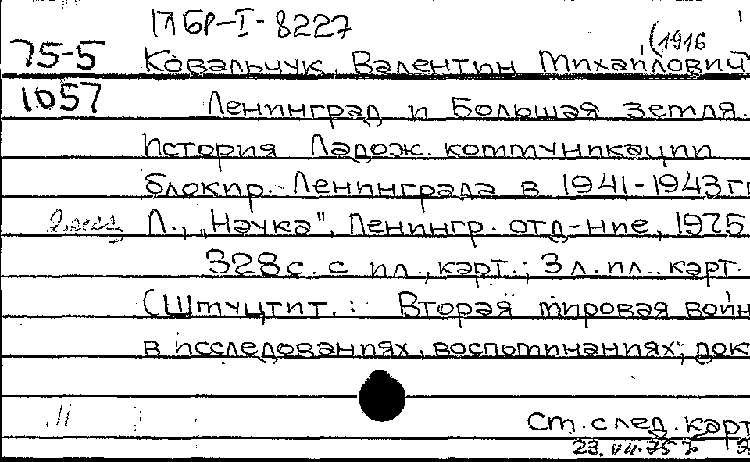 ПБР-I-8227
75-5 Ковальчук, Валентин Михайлович (1916
1057 Ленинград и Большая земля.
История Ладож. коммуникации
блокир. Ленинграда в 1941-1943 гг
Л., „Наука", Ленингр. отд-ние, 1975
328 с. с ил., карт.; 3 л. ил. карт.
(Ш тит.: Вторая мировая войн
в исследованиях, воспоминаниях, док
См. след. карт
23. VII. 75